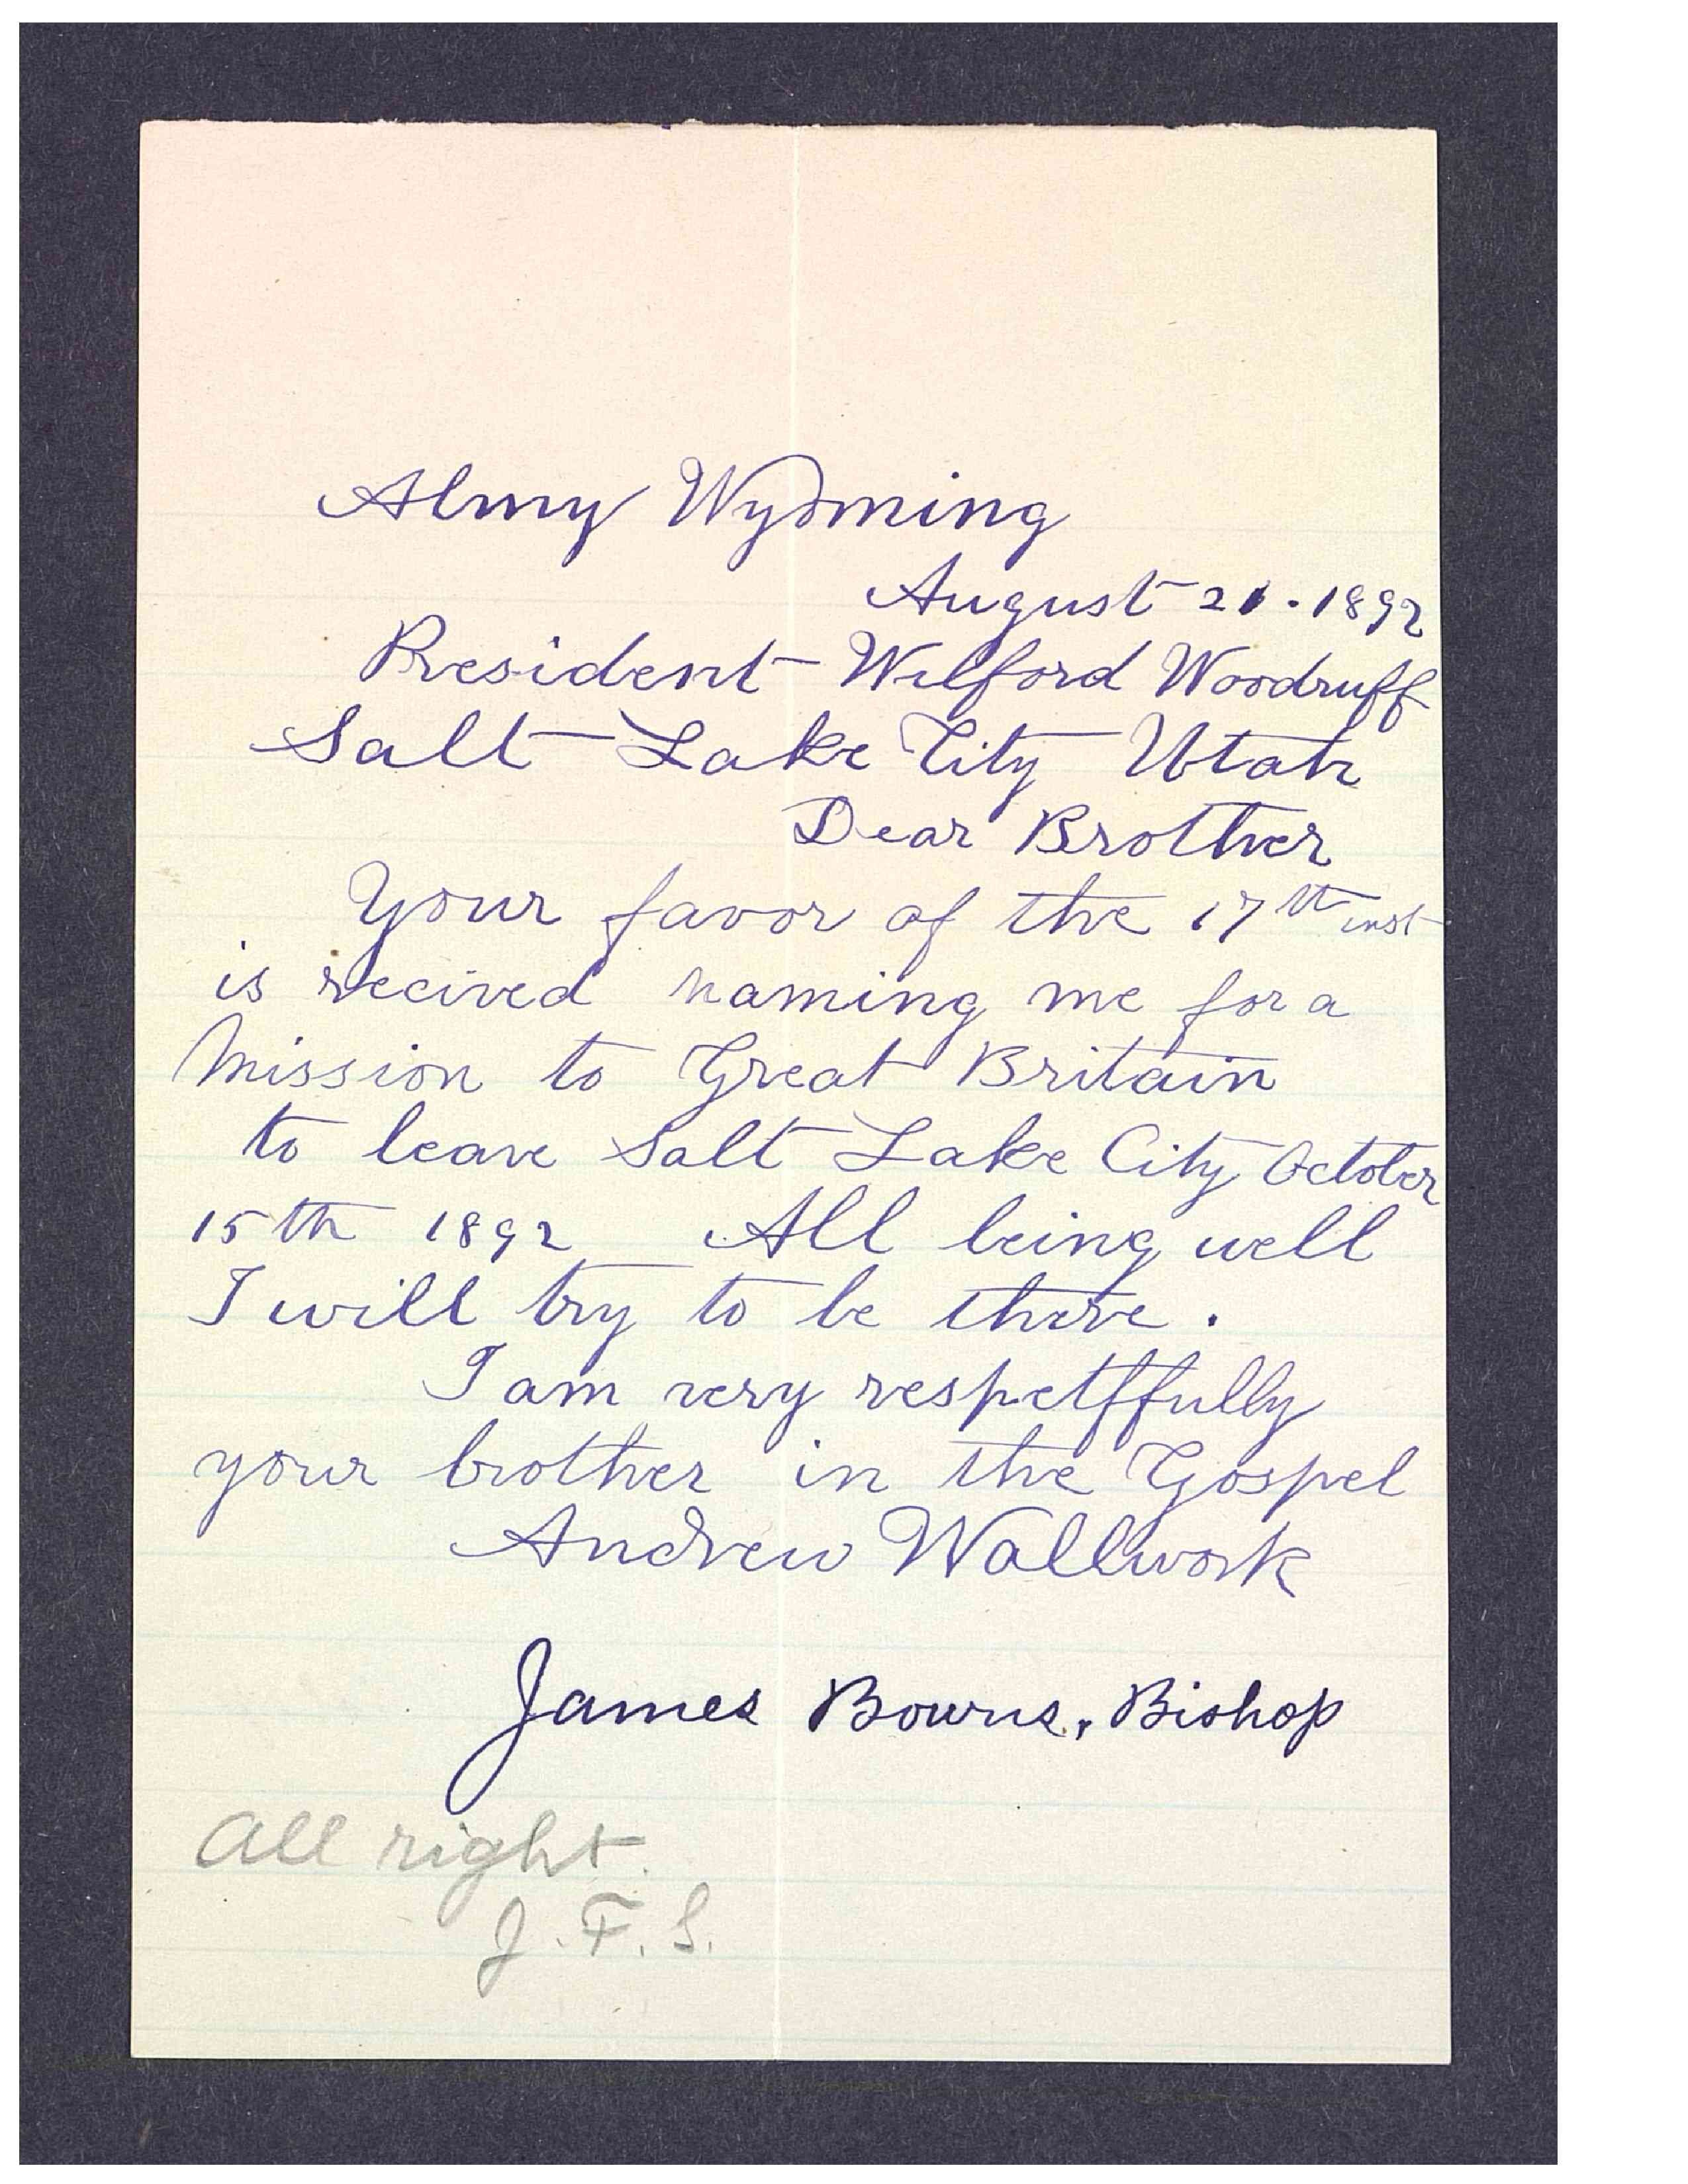 Almy Wyoming
August 21 . 1892
President Wilford Woodruff
Salt Lake City Utah
Dear Brother
Your favor of the 17th inst
is recived naming me for a
Mission to Great Britain
to leave Salt Lake City October
15th 1892 All being well
I will try to be there .
I am very respetffully
your brother in the Gospel
Andrew Wallwork
James Bowns, Bishop
All right.
J. F. S.